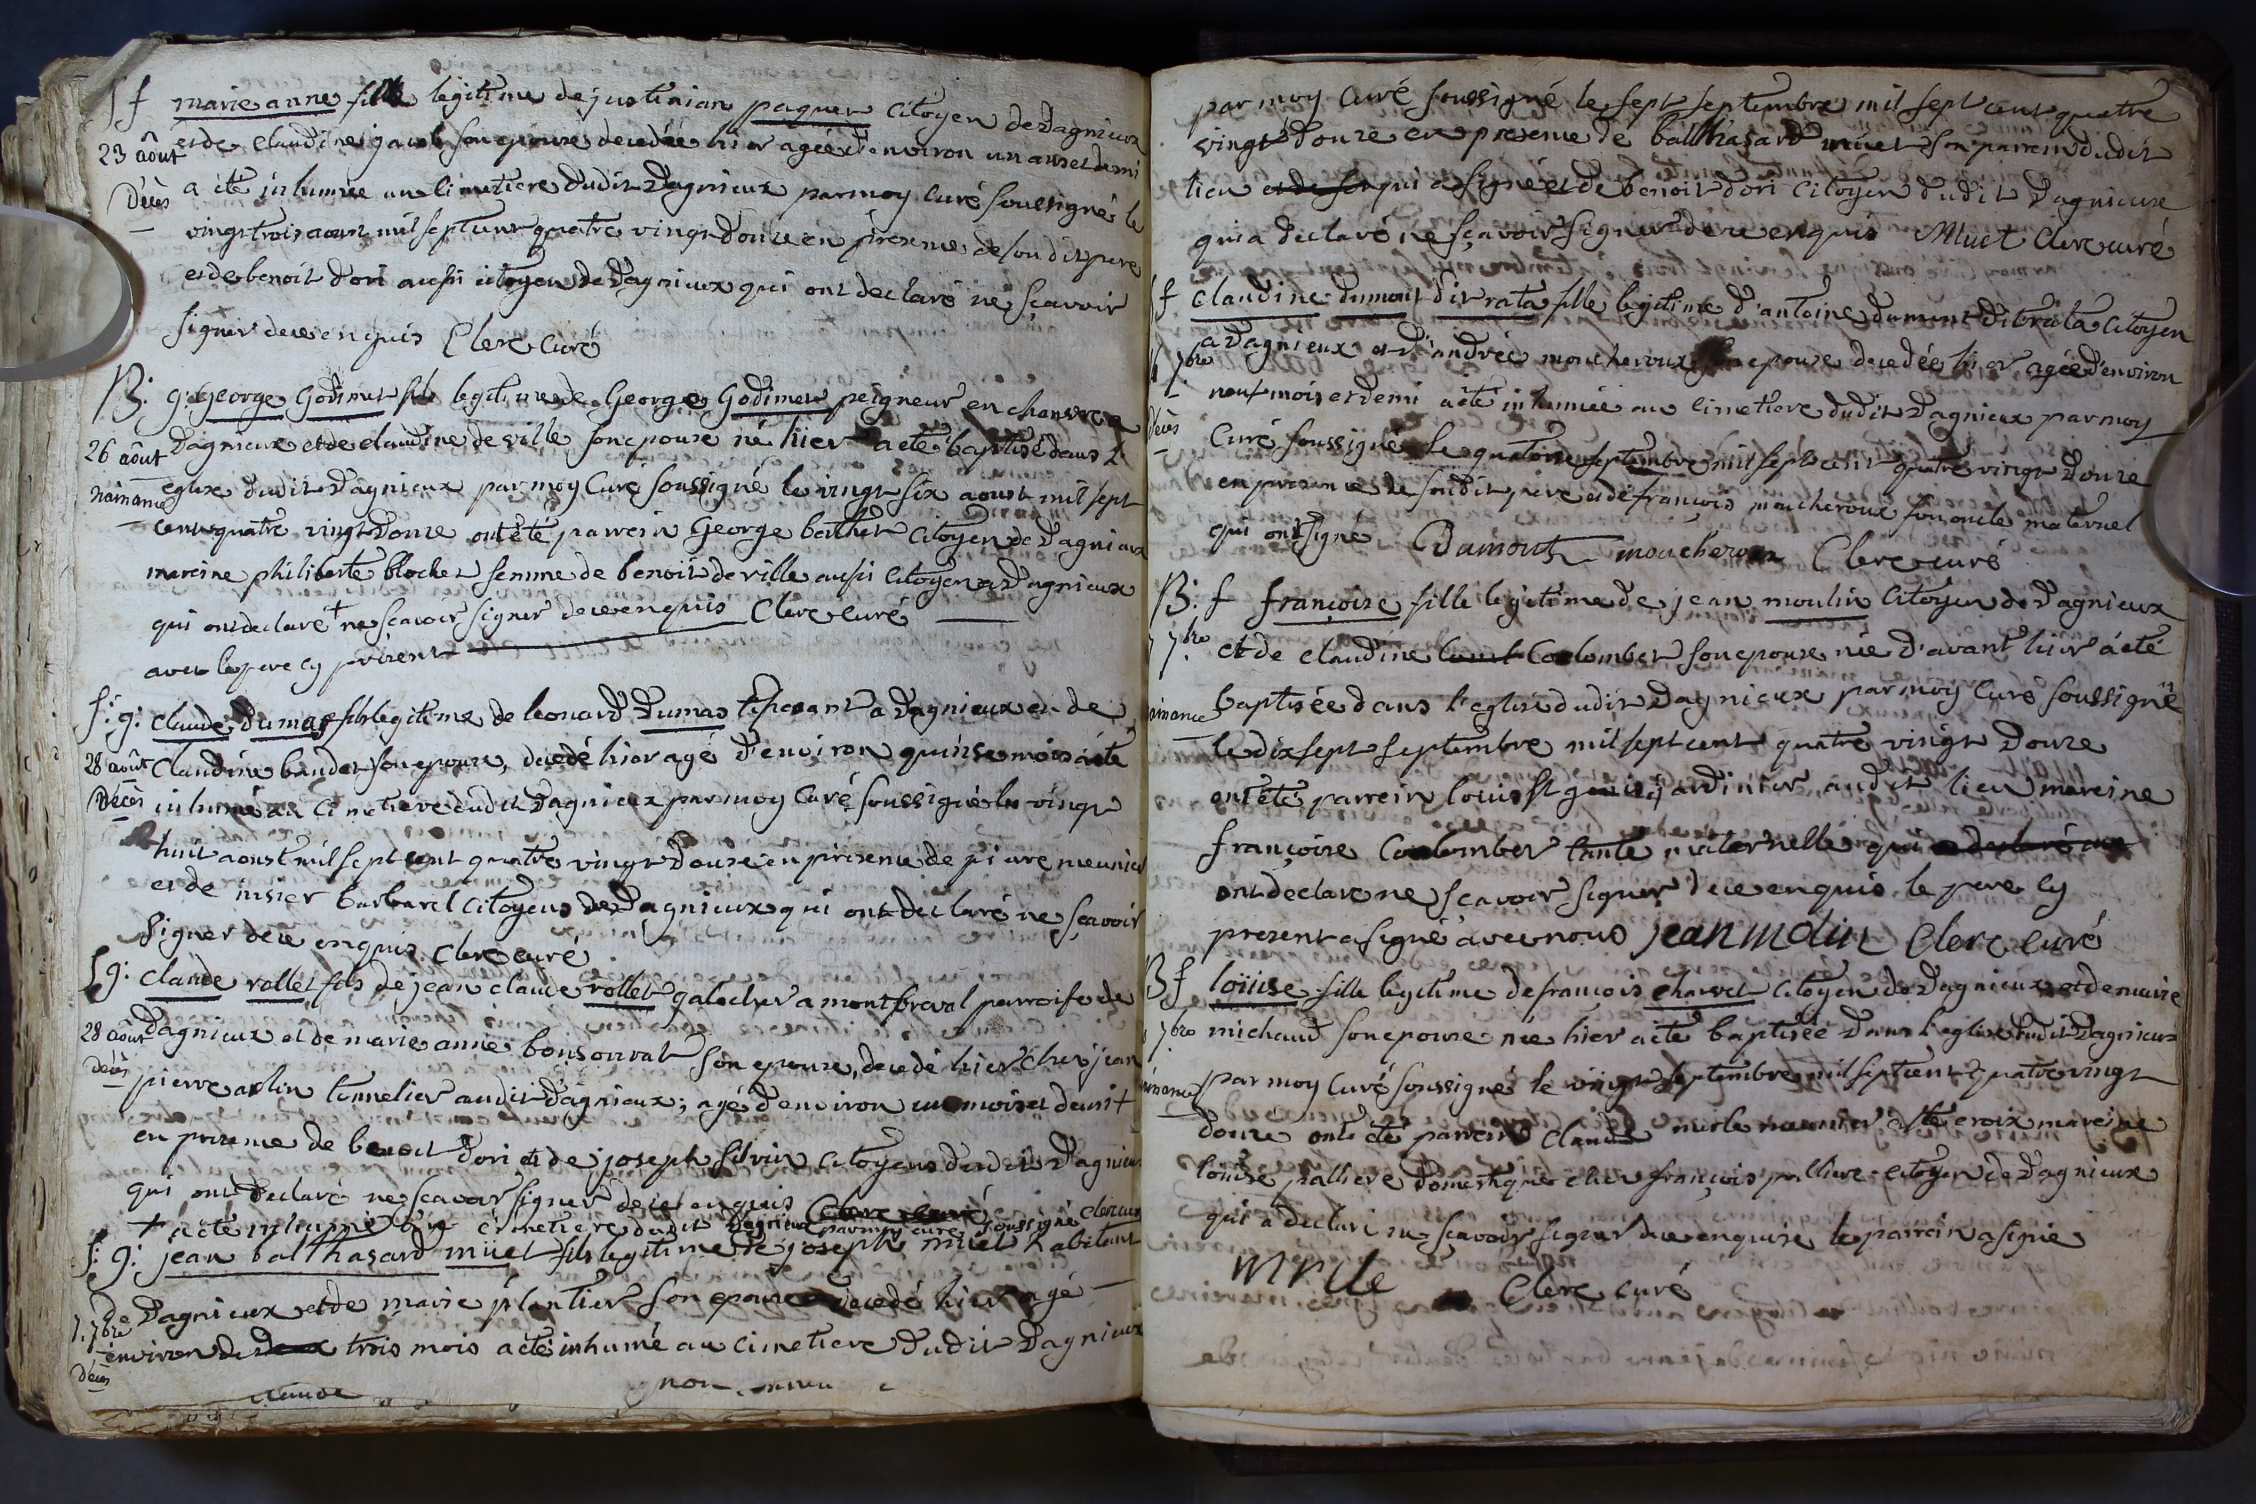 S f marie anne fille legitime de justinian paquer Citoyen de Dagnieux
23 août et de Claudine jacob son epouse decedée hier agée d'environ un an et demi
Décès a été inhumée au cimetiere dudit Dagnieux par moy Curé soussigné le
vingt trois aoust mil sept cent quatre vingt douze en présence de son dit pere
et de benoit dori aussi citoyen de Dagnieux qui ont declaré ne sçavoir
signer de ce enquis Clerc Curé
B: g: George Godimet fils legitime de George Godimet peigneur en chanvre a
26 août Dagnieux et de claudine deville son epouse né hier a été baptisé dans l'
naissance eglise dudit Dagnieux par moy Curé soussigné le vingt six aoust mil sept
cent quatre vingt douze ont été parrein George berthet Citoyen de Dagnieux
mareine philiberte blochet femme de benoit deville aussi Citoyen a Dagnieux
qui ont declaré + ne sçavoir signer de ce enquis Clerc curé
avec le pere cy présent
S: g: Claude Dumas fils legitime de leonard Dumas tisserant a Dagnieux et de
28 août Claudine baudet son epouse, decedé hier agé d'environ quinse mois a été
Décès inhumé au Cimetiere dudit Dagnieux par moy Curé soussigné le vingt
huit aoust mil sept cent quatre vingt douze en présence de piere meunier
et de barbaret Citoyens de Dagnieux qui ont declaré ne sçavoir
signer de ce enquis Clerc curé
S g: Claude rollet fils de jean claude rollet galocher a montbreval parroisse de
28 août Dagnieux et de marie anne bonsonval son epouse, decedé hier chez jean
décès pierre arlin tonnelier audit Dagnieux; agé d'environ un mois et demi +
en présence de benoit dori et de joseph silvin Citoyens dudit Dagnieux
qui ont declaré ne sçavoir signer de ce enquis Clerc curé
+ a été inhumé au cimetiere dudit Dagnieux par moy curé soussigné clerc curé
S: g: jean balthasard müet fils legitime de joseph müet habitant
7.bre de Dagnieux et de marie plantier son epouse decedé hier agé
décès environ de deux trois mois a été inhumé au cimetiere dudit Dagnieux
par moy Curé soussigné le sept septembre mil sept cent quatre
vingt douze en presence de balthasard müet son parrein dudit
lieu et de son qui a signé et de benoit dori Citoyen dudit Dagnieux
qui a declaré ne sçavoir signer de ce enquis Muet Clerc curé
f Claudine dumont dit rata fille legitime d'antoine dumont dit rata Citoyen
7bre a Dagnieux et d'andrée moucheroux son epouse decedée hier agée d'environ
décès neuf mois et demi a été inhumée au cimetiere dudit Dagnieux par moy
Curé soussigné le quatorse septembre mil sept cent quatre vingt douze
en présence de son dit pere et de francois moucheroux son oncle maternel
qui ont signé Dumont moucheroux Clerc curé
B: f françoise fille legitime de jean moulin Citoyen de Dagnieux
7.bre et de claudine Coulombet son epouse née d'avant hier a été
naissance baptisée dans l'eglise dudit Dagnieux par moy Curé soussigné
le dix sept septembre mil sept cent quatre vingt douze
ont été parrein louis St genis jardinier audit lieu mareine
françoise Coulombet tante maternelle qui a declaré
ont declaré ne sçavoir signer de ce enquis le pere cy
present a signé avec nous jean molin Clerc Curé
B f loüise fille legitime de francois charvet Citoyen de Dagnieux et de marie
7bre michaud son epouse née hier a été baptisée dans l'eglise dudit Dagnieux
naissance par moy Curé soussigné le vingt septembre mil sept cent quatre vingt
douze ont été parrein Claude mirle meunier a Ste croix mareine
loüise palliere domestique chez françois palliere citoyen de Dagnieux
qui a declaré ne sçavoir signer de ce enquise le parrein a signé
Mrile Clerc curé